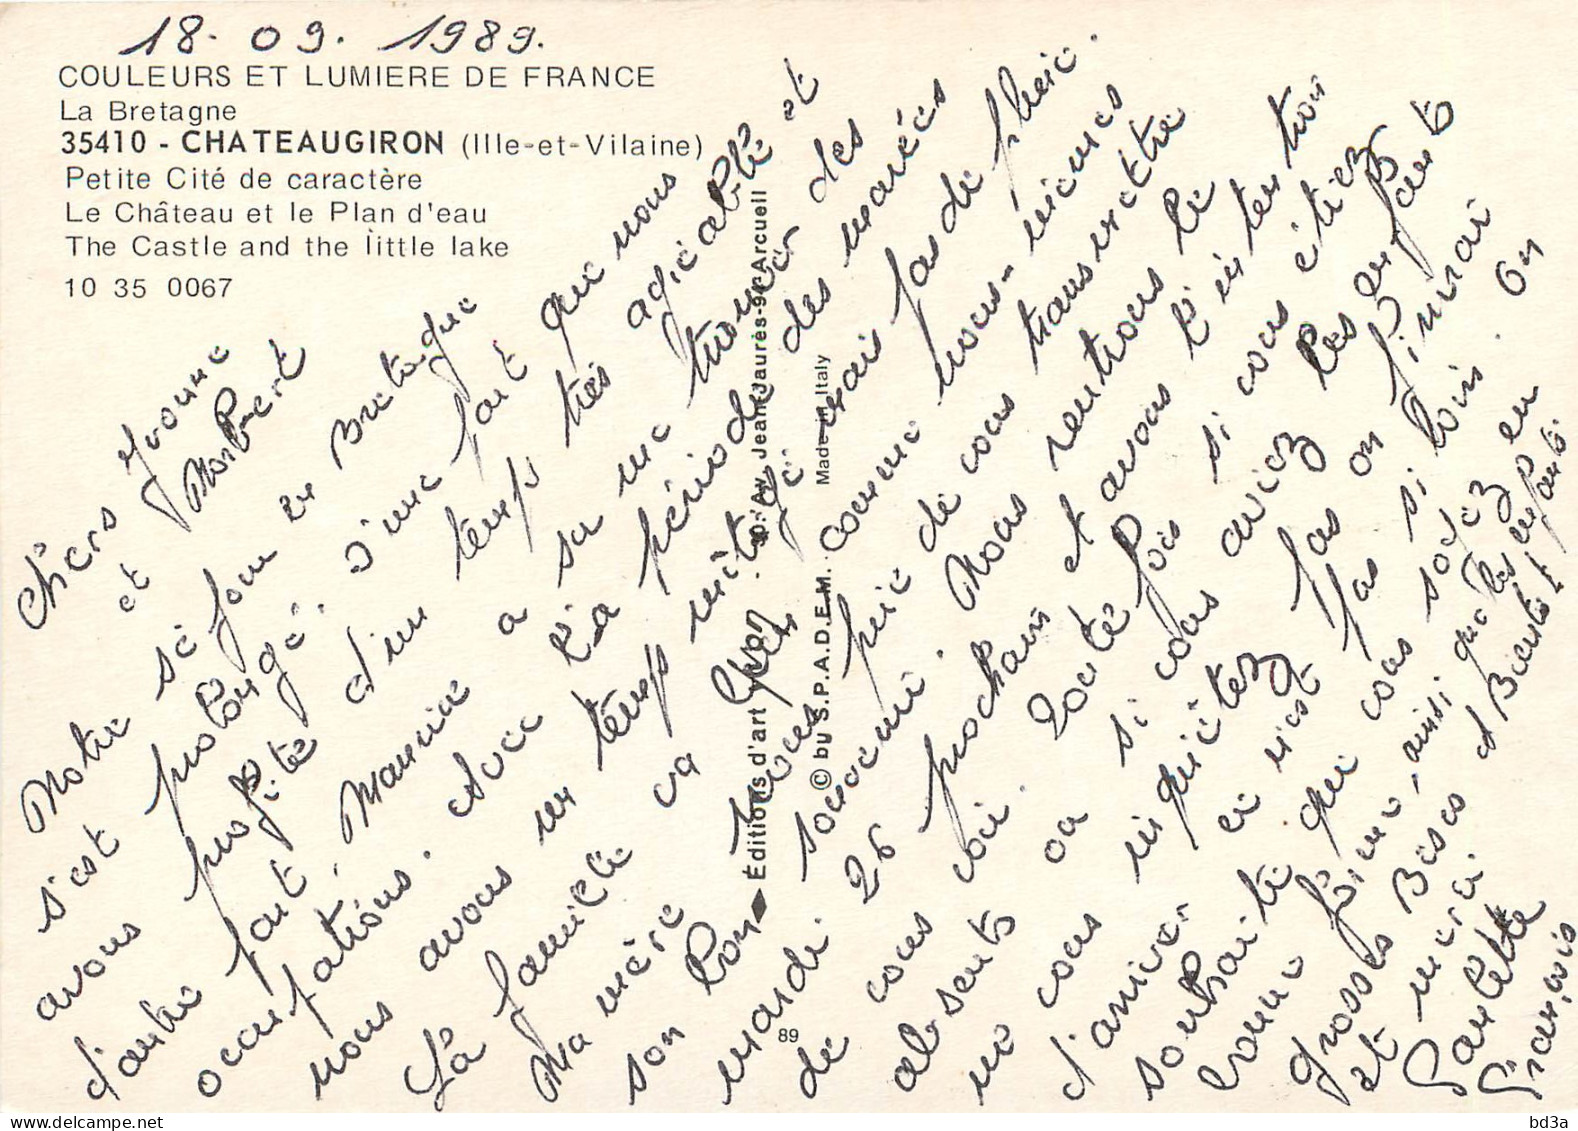 18. 09. 1989.
COULEURS ET LUMIERE DE FRANCE
La Bretagne
35410 - CHATEAUGIRON (Ille-et-Vilaine)
Petite Cité de caractère
Le Château et le Plan d'eau
The Castle and the little lake
10 35 0067
Chers Yvonne
et Norbert
Notre séjour en Bretagne
s'est prolongé. D'une part que nous
avons profité d'un temps très agréable et
d'autre part, Maurice a su me trouver des
occupations. Avec la période des marées
nous avons un temps mitigé mais pas de pluie.
La famille va bien comme nous-mêmes
Ma mère nous prie de vous transmettre
son bon souvenir. Nous rentrons le
mardi 26 prochain et avons l'intention
de vous voir. Toute fois si vous étiez
absents ou si vous aviez les enfants
ne vous inquiétez pas on finirai
d'arriver ce n'est pas si loin. On
souhaite que vous soyez en
bonne forme, ainsi que les enfants.
Grosses Bises et Bientôt
et merci
Paulette
François
Éditions d'art
Jean-Jaurès-94-Arcueil
© by S.P.A.D.E.M.
Made in Italy
89
bd3a